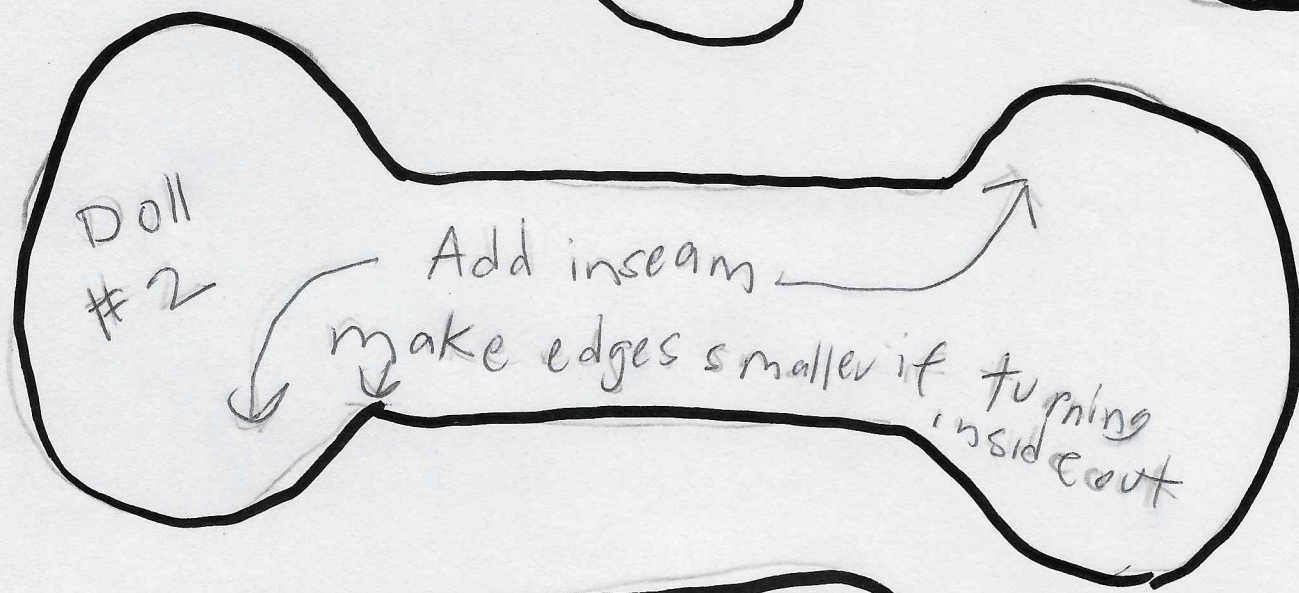 Doll
#2
Add inseam
make edges smaller if turning
insideout